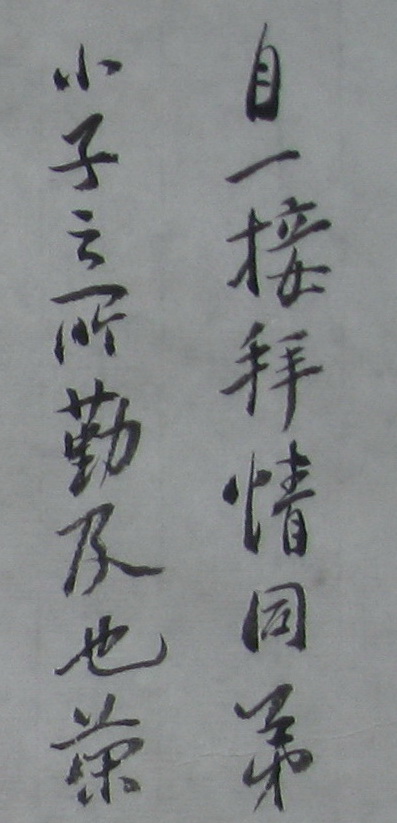 自一接拜情同弟
小子之所勤及也蘭